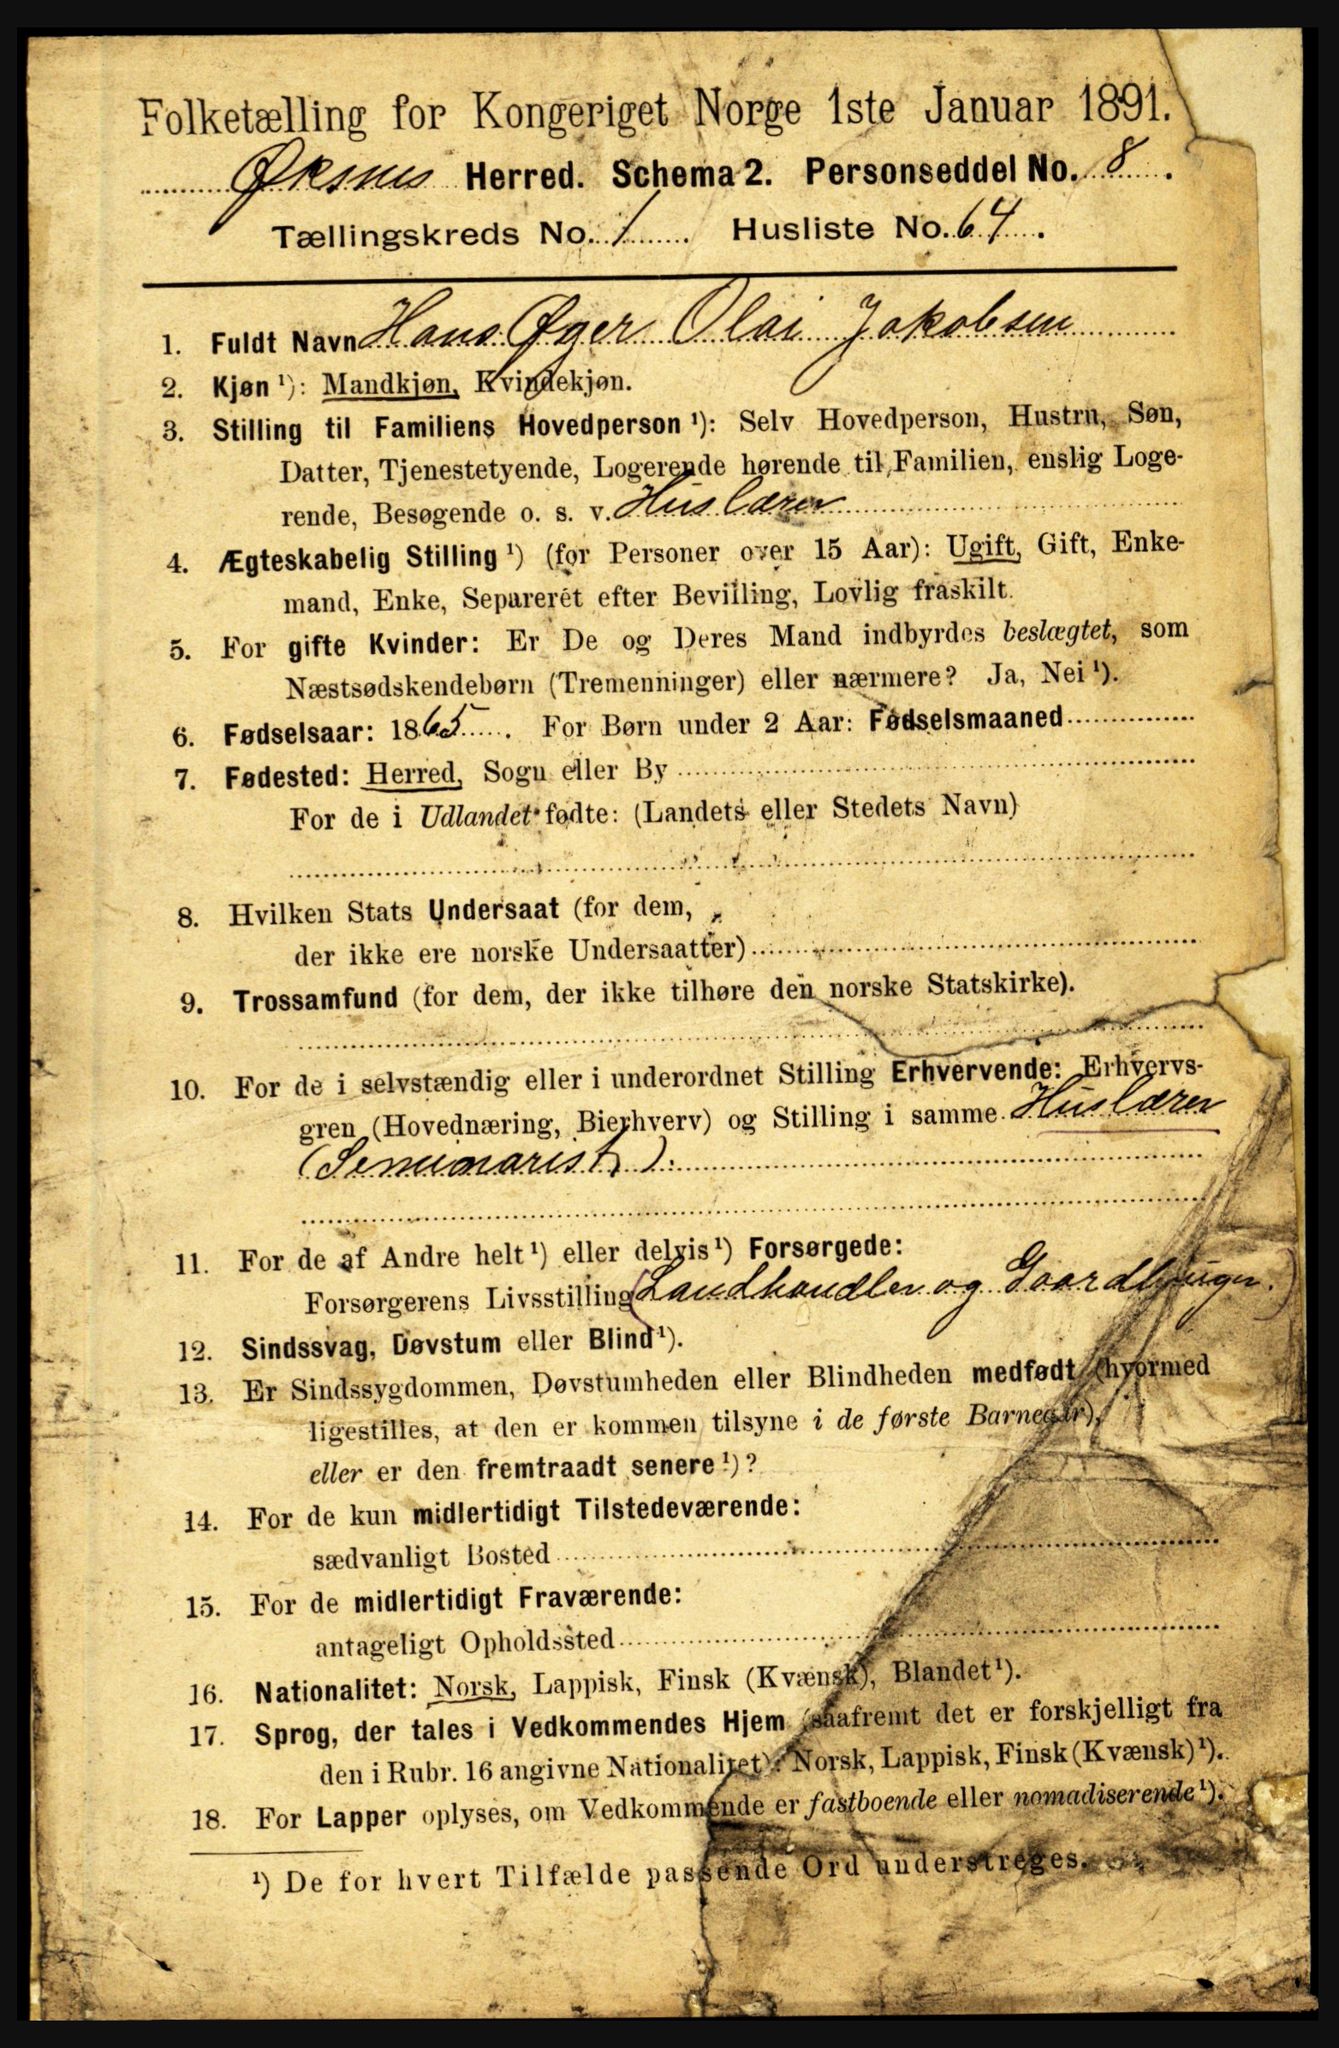 Folketælling for Kongeriget Norge 1ste Januar 1891.
Øksnes Herred. Schema 2. Personseddel No. 8.
Tællingskreds No. 1. Husliste No. 64.
1. Fuldt Navn Hans Øger Olai Jakobsen
2. Kjøn ¹): Mandkjøn, Kvindekjøn.
3. Stilling til Familiens Hovedperson ¹): Selv Hovedperson, Hustru, Søn,
Datter, Tjenestetyende, Logerende hørende til Familien, enslig Loge-
rende, Besøgende o. s. v. Huslærer
4. Ægteskabelig Stilling ¹) (for Personer over 15 Aar): Ugift, Gift, Enke-
mand, Enke, Separeret efter Bevilling, Lovlig fraskilt.
5. For gifte Kvinder: Er De og Deres Mand indbyrdes beslægtet, som
Næstsødskendebørn (Tremenninger) eller nærmere? Ja, Nei ¹).
6. Fødselsaar: 1865. For Børn under 2 Aar: Fødselsmaaned
7. Fødested: Herred, Sogn eller By
For de i Udlandet fødte: (Landets eller Stedets Navn)
8. Hvilken Stats Undersaat (for dem,
der ikke ere norske Undersaatter)
9. Trossamfund (for dem, der ikke tilhøre den norske Statskirke).
10. For de i selvstændig eller i underordnet Stilling Erhvervende: Erhvervs-
gren (Hovednæring, Bierhverv) og Stilling i samme Huslærer
(Seminarist).
11. For de af Andre helt ¹) eller delvis ¹) Forsørgede:
Forsørgerens Livsstilling (Landhandler og Gaardbruger.)
12. Sindssvag, Døvstum eller Blind ¹).
13. Er Sindssygdommen, Døvstumheden eller Blindheden medfødt (hvormed
ligestilles, at den er kommen tilsyne i de første Barneaar),
eller er den fremtraadt senere ¹)?
14. For de kun midlertidigt Tilstedeværende:
sædvanligt Bosted
15. For de midlertidigt Fraværende:
antageligt Opholdssted
16. Nationalitet: Norsk, Lappisk, Finsk (Kvænsk), Blandet ¹).
17. Sprog, der tales i Vedkommendes Hjem (saafremt det er forskjelligt fra
den i Rubr. 16 angivne Nationalitet): Norsk, Lappisk, Finsk (Kvænsk) ¹).
18. For Lapper oplyses, om Vedkommende er fastboende eller nomadiserende ¹).
¹) De for hvert Tilfælde passende Ord understreges.